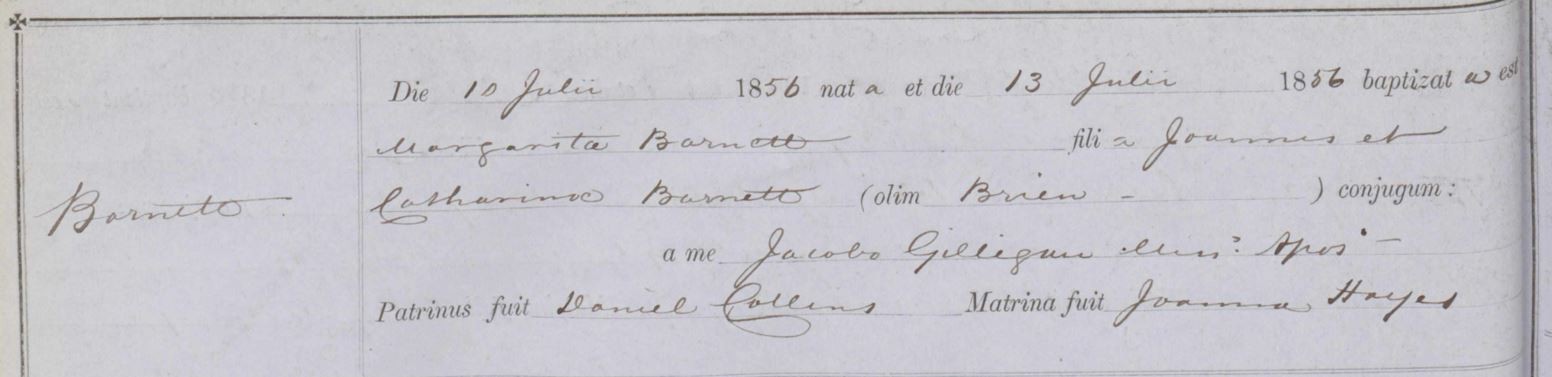 Die 10 Julii 1856 nata et die 13 Julii 1856 baptizata est
Margarita Barnett filia Joannis et
Barnett
Catharinae Barnett (olim Brien - ) conjugum:
a me Jacobo Gilligan Miss. Apos -
Patrinus fuit Daniel Collins Matrina fuit Joanna Hayes